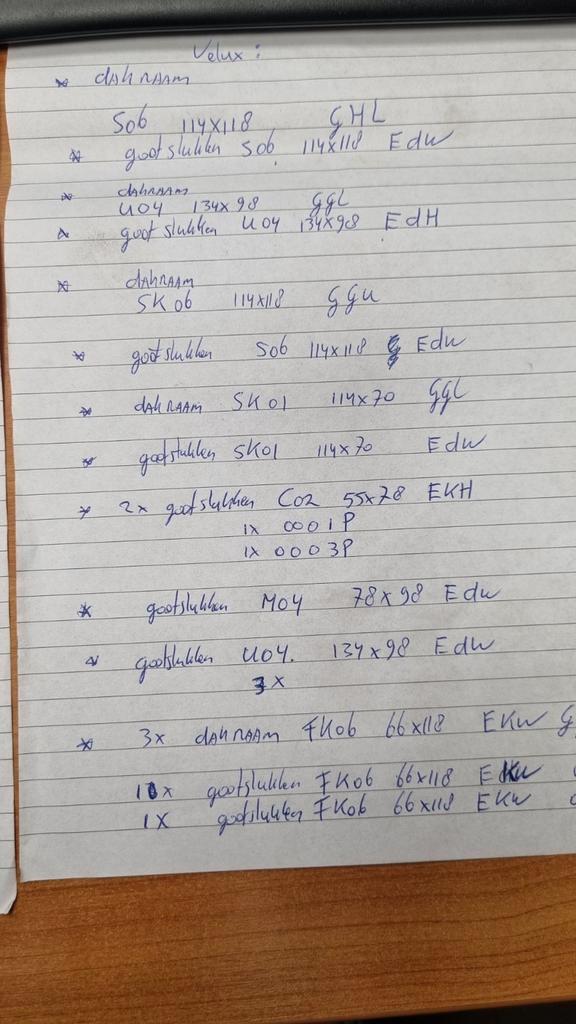 Velux:
* dAkRAAM
S06 114x118 GHL
* gootstukken S06 114x118 Edw
* dAkRAAM
U04 134x98 GGL
* gootstukken U04 134x98 EdH
* dAkRAAM
SK06 114x118 GGU
* gootstukken S06 114x118 Edw
* dAkRAAM SK01 114x70 GGL
* gootstukken SK01 114x70 Edw
* 2x gootstukken C02 55x78 EKH
1x 0001P
1x 0003P
* gootstukken M04 78x98 Edw
* gootstukken U04. 134x98 Edw
3x
* 3x dAkRAAM FK06 66x118 EKW G
1x gootstukken FK06 66x118 EKW
1x gootstukken FK06 66x118 EKW